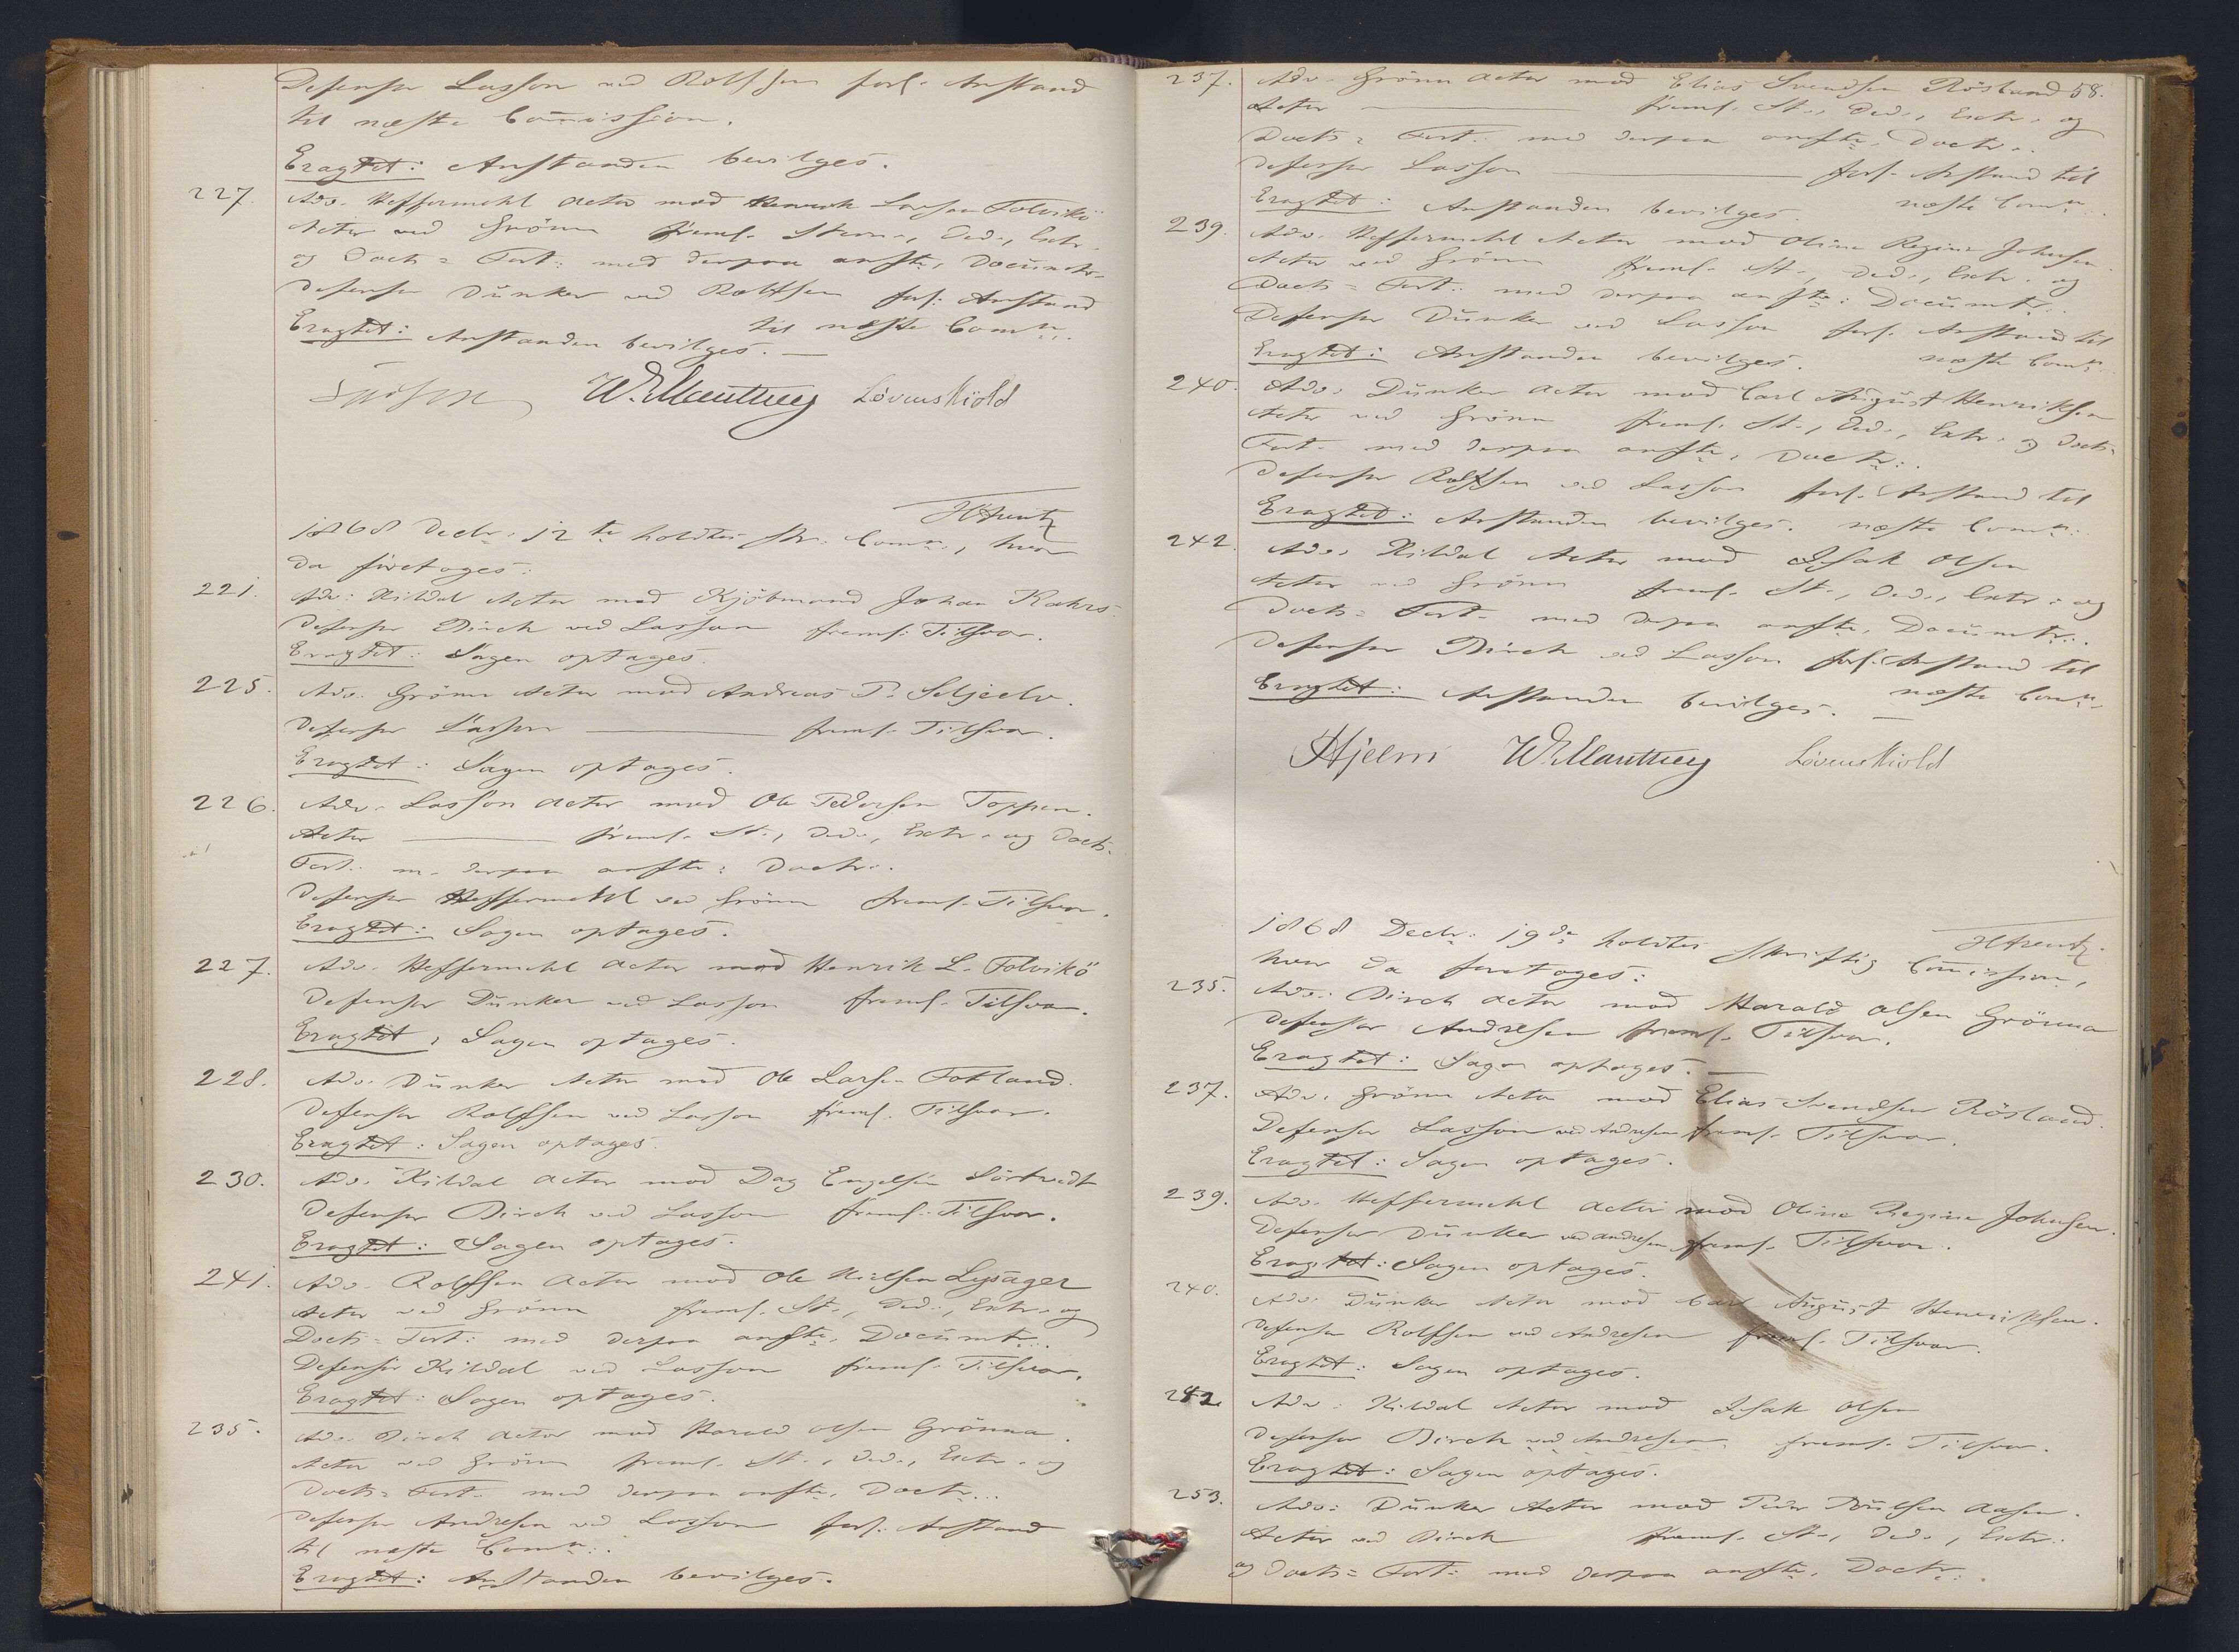 Defensor Lasson ved Rolfsen forl. Anstand
til næste Com̄ission.
Eragtet: Anstanden bevilges.
227. Adv. Heffermehl Actor mod Henrik Larsen Tolvikö
Actor ved Grönn freml. Stevn., Ded., Extr.
og Docts = Fort: med derpaa anfte, Documtr.
Defensor Dunker ved Rolfsen forl: Anstand
til næste Comn.
Eragtet: Anstanden bevilges. —
W. E. Manthey Lövenskiold
1868 Decbr. 12te holdtes skr: Comn., hvor
da foretoges:
221. Adv: Kildal Actor mod Kjöbmand Johan Kahrs.
Defensor Birch ved Lasson freml: Tilsvar.
Eragtet: Sagen optages.
225. Adv. Grönn Actor mod Andreas P. Seljeelv.
Defensor Lasson — freml. Tilsvar.
Eragtet: Sagen optages.
226. Adv. Lasson Actor mod Ole Pedersen Toppen.
Actor — freml. St., Ded., Extr. og Docts.
Fort. m. derpaa anfte: Doctr.
Defensor Heffermehl ved Grönn freml. Tilsvar.
Eragtet: Sagen optages.
227. Adv. Heffermehl Actor mod Henrik L. Tolvikö
Defensor Dunker ved Lasson freml. Tilsvar.
Eragtet, Sagen optages.
228. Adv. Dunker Actor mod Ole Larsen Fotland.
Defensor Rolfsen ved Lasson freml. Tilsvar.
Eragtet: Sagen optages.
230. Adv. Kildal Actor mod Dag Engelsen Sörtvedt
Defensor Birch ved Lasson freml: Tilsvar.
Eragtet: Sagen optages.
241. Adv. Rolfsen Actor mod Ole Nielsen Lysager
Actor ved Grönn freml. St., Ded., Extr. og
Docts = Fort: med derpaa anfte, Documtr.
Defensor Kildal ved Lasson freml. Tilsvar.
Eragtet: Sagen optages.
235. Adv. Birch Actor mod Harald Olsen Grönna.
Actor ved Grönn freml. St., Ded., Extr. og
Docts = Fort. med derpaa anfte, Doctr.
Defensor Andresen ved Lasson forl: Anstand
til næste Comn.
Eragtet: Anstanden bevilges.
58.
237. Adv. Grönn Actor mod Elias Svendsen Rösland
Actor — freml. St., Ded., Extr. og
Docts = Fort: med derpaa anfte, Doctr.
Defensor Lasson — forl. Anstand til
næste Comn.
Eragtet: Anstanden bevilges.
239. Adv. Heffermehl Actor mod Oline Regine Johnsen.
Actor ved Grönn freml. St., Ded., Extr. og
Docts = Fort: med derpaa anfte: Documtr.
Defensor Dunker ved Lasson forl. Anstand til
næste Comn.
Eragtet: Anstanden bevilges.
240. Adv. Dunker Actor mod Carl August Henriksen
Actor ved Grönn freml. St., Ded., Extr. og Docts.
Fort. med derpaa anfte, Doctr.
Defensor Rolfsen ved Lasson forl. Anstand til
Eragtet: Anstanden bevilges. næste Comn.
242. Adv. Kildal Actor mod Isak Olsen
Actor ved Grönn freml. St., Ded., Extr. og
Docts = Fort. med derpaa anfte, Documtr.
Defensor Birch ved Lasson forl. Anstand til
næste Comn.
Eragtet: Anstanden bevilges. —
Hjelm W. E. Manthey Lövenskiold
1868 Decbr: 19de holdtes skriftlig Com̄ission,
hvor da foretoges:
235. Adv. Birch Actor mod Harald Olsen Grönna
Defensor Andresen freml. Tilsvar.
Eragtet: Sagen optages. —
237. Adv. Grönn Actor mod Elias Svendsen Rösland.
Defensor Lasson ved Andresen freml. Tilsvar.
Eragtet: Sagen optages.
239. Adv. Heffermehl Actor mod Oline Regine Johnsen.
Defensor Dunker ved Andresen freml. Tilsvar.
Eragtet: Sagen optages.
240. Adv. Dunker Actor mod Carl August Henriksen.
Defensor Rolfsen ved Andresen freml. Tilsvar.
Eragtet: Sagen optages.
242. Adv: Kildal Actor mod Isak Olsen
Defensor Birch ved Andresen freml. Tilsvar.
Eragtet: Sagen optages.
253. Adv: Dunker Actor mod Peder Poulsen Aasen.
Actor ved Birch freml. St., Ded., Extr.
og Docts = Fort: med derpaa anfte, Doctr.